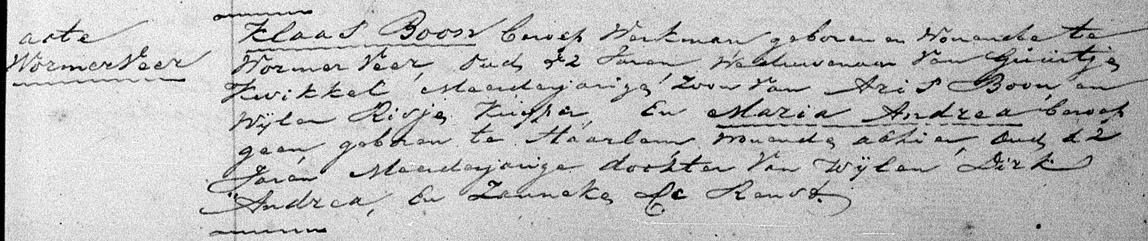 acte
WormerVeer
Klaas Boon beroep Werkman geboren en Wonende te
WormerVeer, Oud 42 Jaren Weduwenaar Van Guurtje
Kwikkel, Meerderjarige Zoon Van Aris Boon, en
Wijlen Risje, En Maria Andrea beroep
geen geboren te Haarlem, Wonende alhier, Oud 42
Jaren Meerderjarige dochter Van Wijlen Dirk
Andrea, En Janneke de